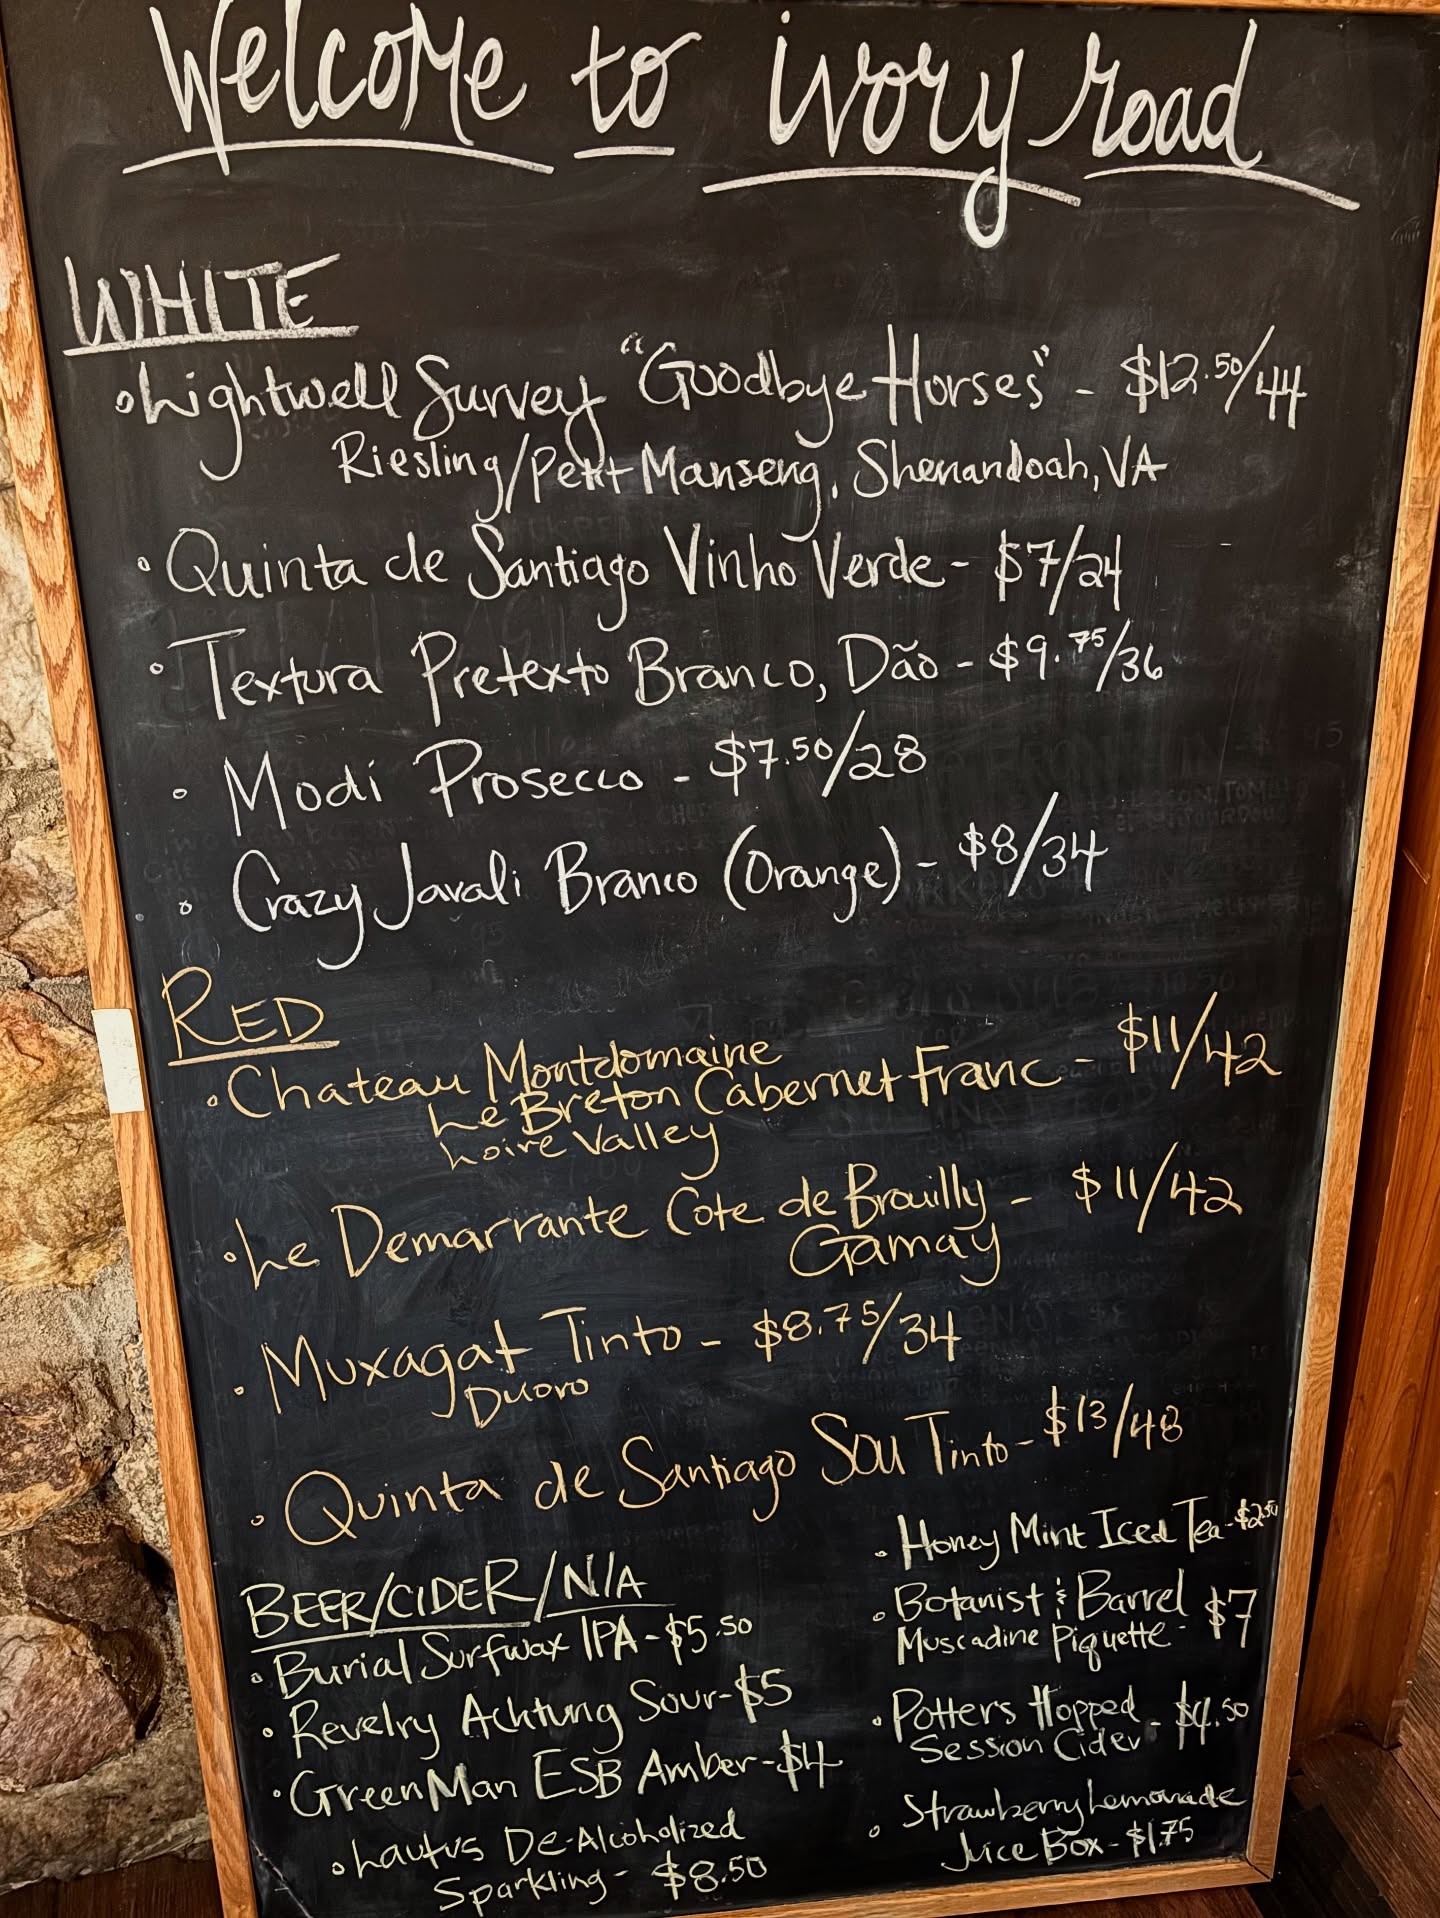 Welcome to ivory road
WHITE
• Lightwell Survey "Goodbye Horses" - $12.50/44
Riesling/Petit Manseng, Shenandoah, VA
• Quinta de Santiago Vinho Verde - $7/24
• Textura Pretexto Branco, Dão - $9.75/36
• Modi Prosecco - $7.50/28
• Crazy Javali Branco (Orange) - $8/34
RED
• Chateau Montdomaine
Le Breton Cabernet Franc - $11/42
Loire Valley
• Le Demarrante Cote de Brouilly - $11/42
Gamay
• Muxagat Tinto - $8.75/34
Duoro
• Quinta de Santiago Sou Tinto - $13/48
BEER/CIDER/N/A
• Burial Surfwax IPA - $5.50
• Revelry Achtung Sour - $5
• Green Man ESB Amber - $4
• Lautus De-Alcoholized
Sparkling - $8.50
• Honey Mint Iced Tea - $2.50
• Botanist & Barrel $7
Muscadine Piquette -
• Potters Hopped - $4.50
Session Cider
• Strawberry Lemonade
Juice Box - $1.75